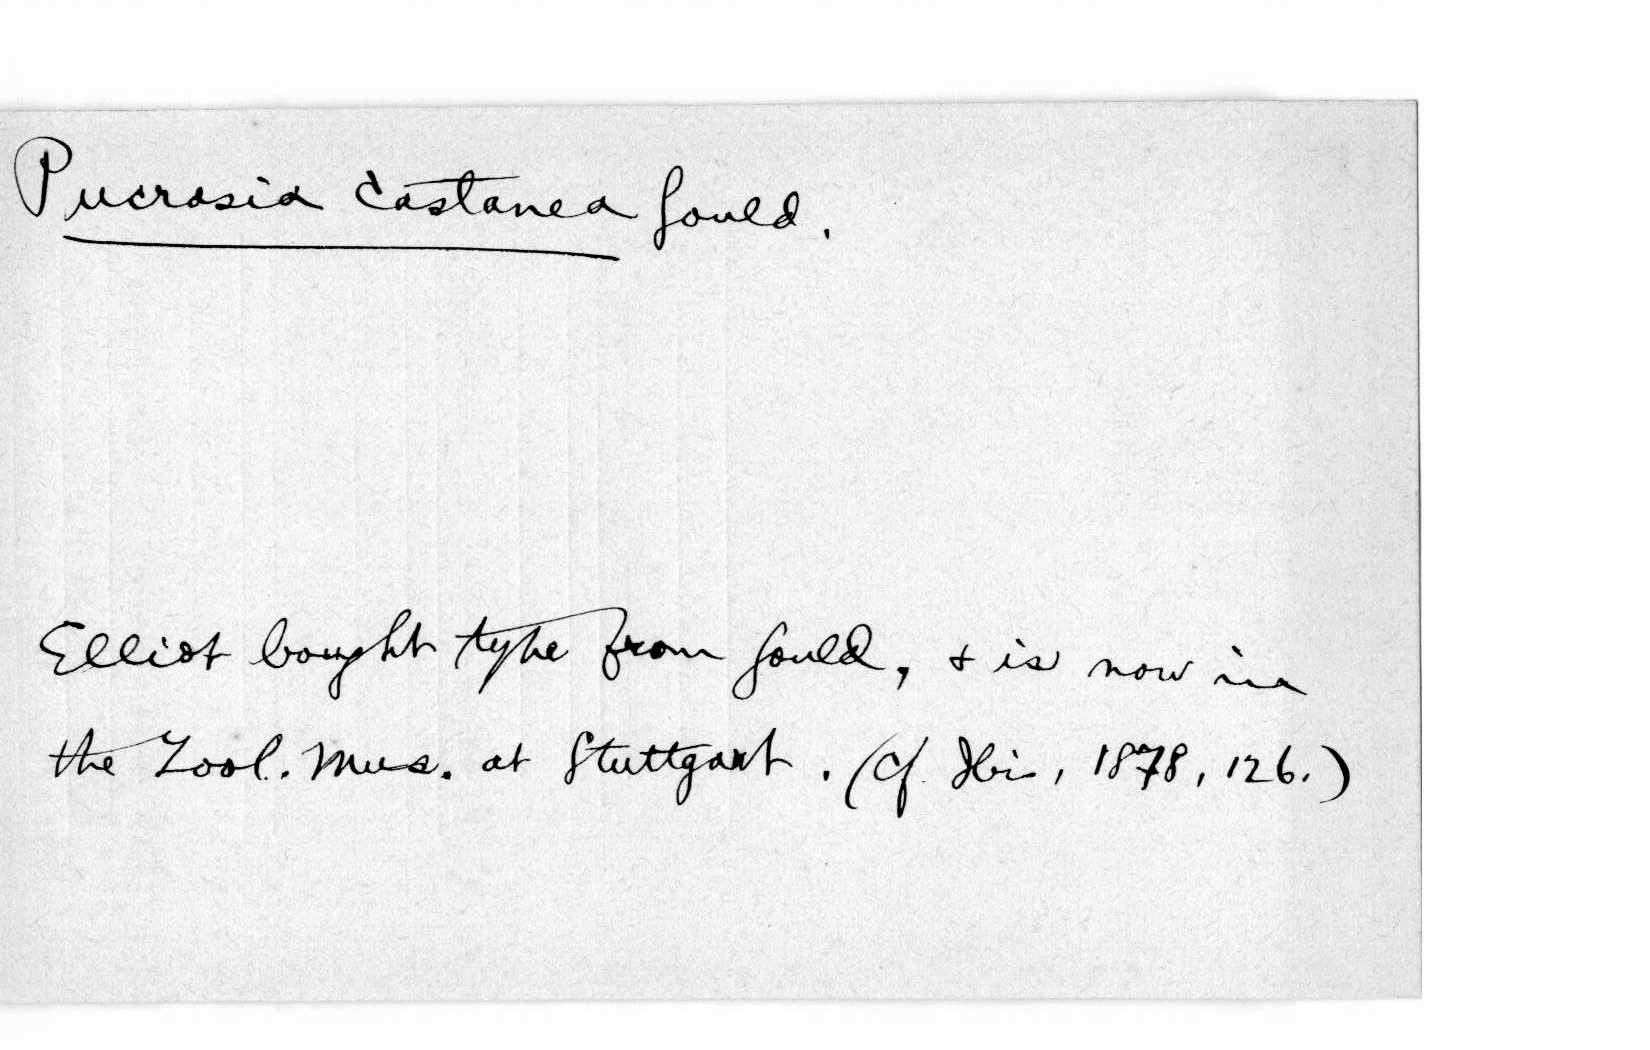 Pucrasia castanea Gould.
Elliot bought type from Gould, & is now in
the Zool. Mus. at Stuttgart. (Cf. Ibis, 1878, 126.)